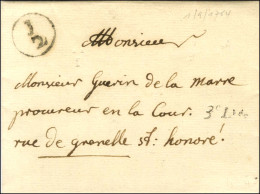 Monsieur
Monsieur Guerin de la Marre
procureur en la Cour.
rue de grenelle st. honoré!